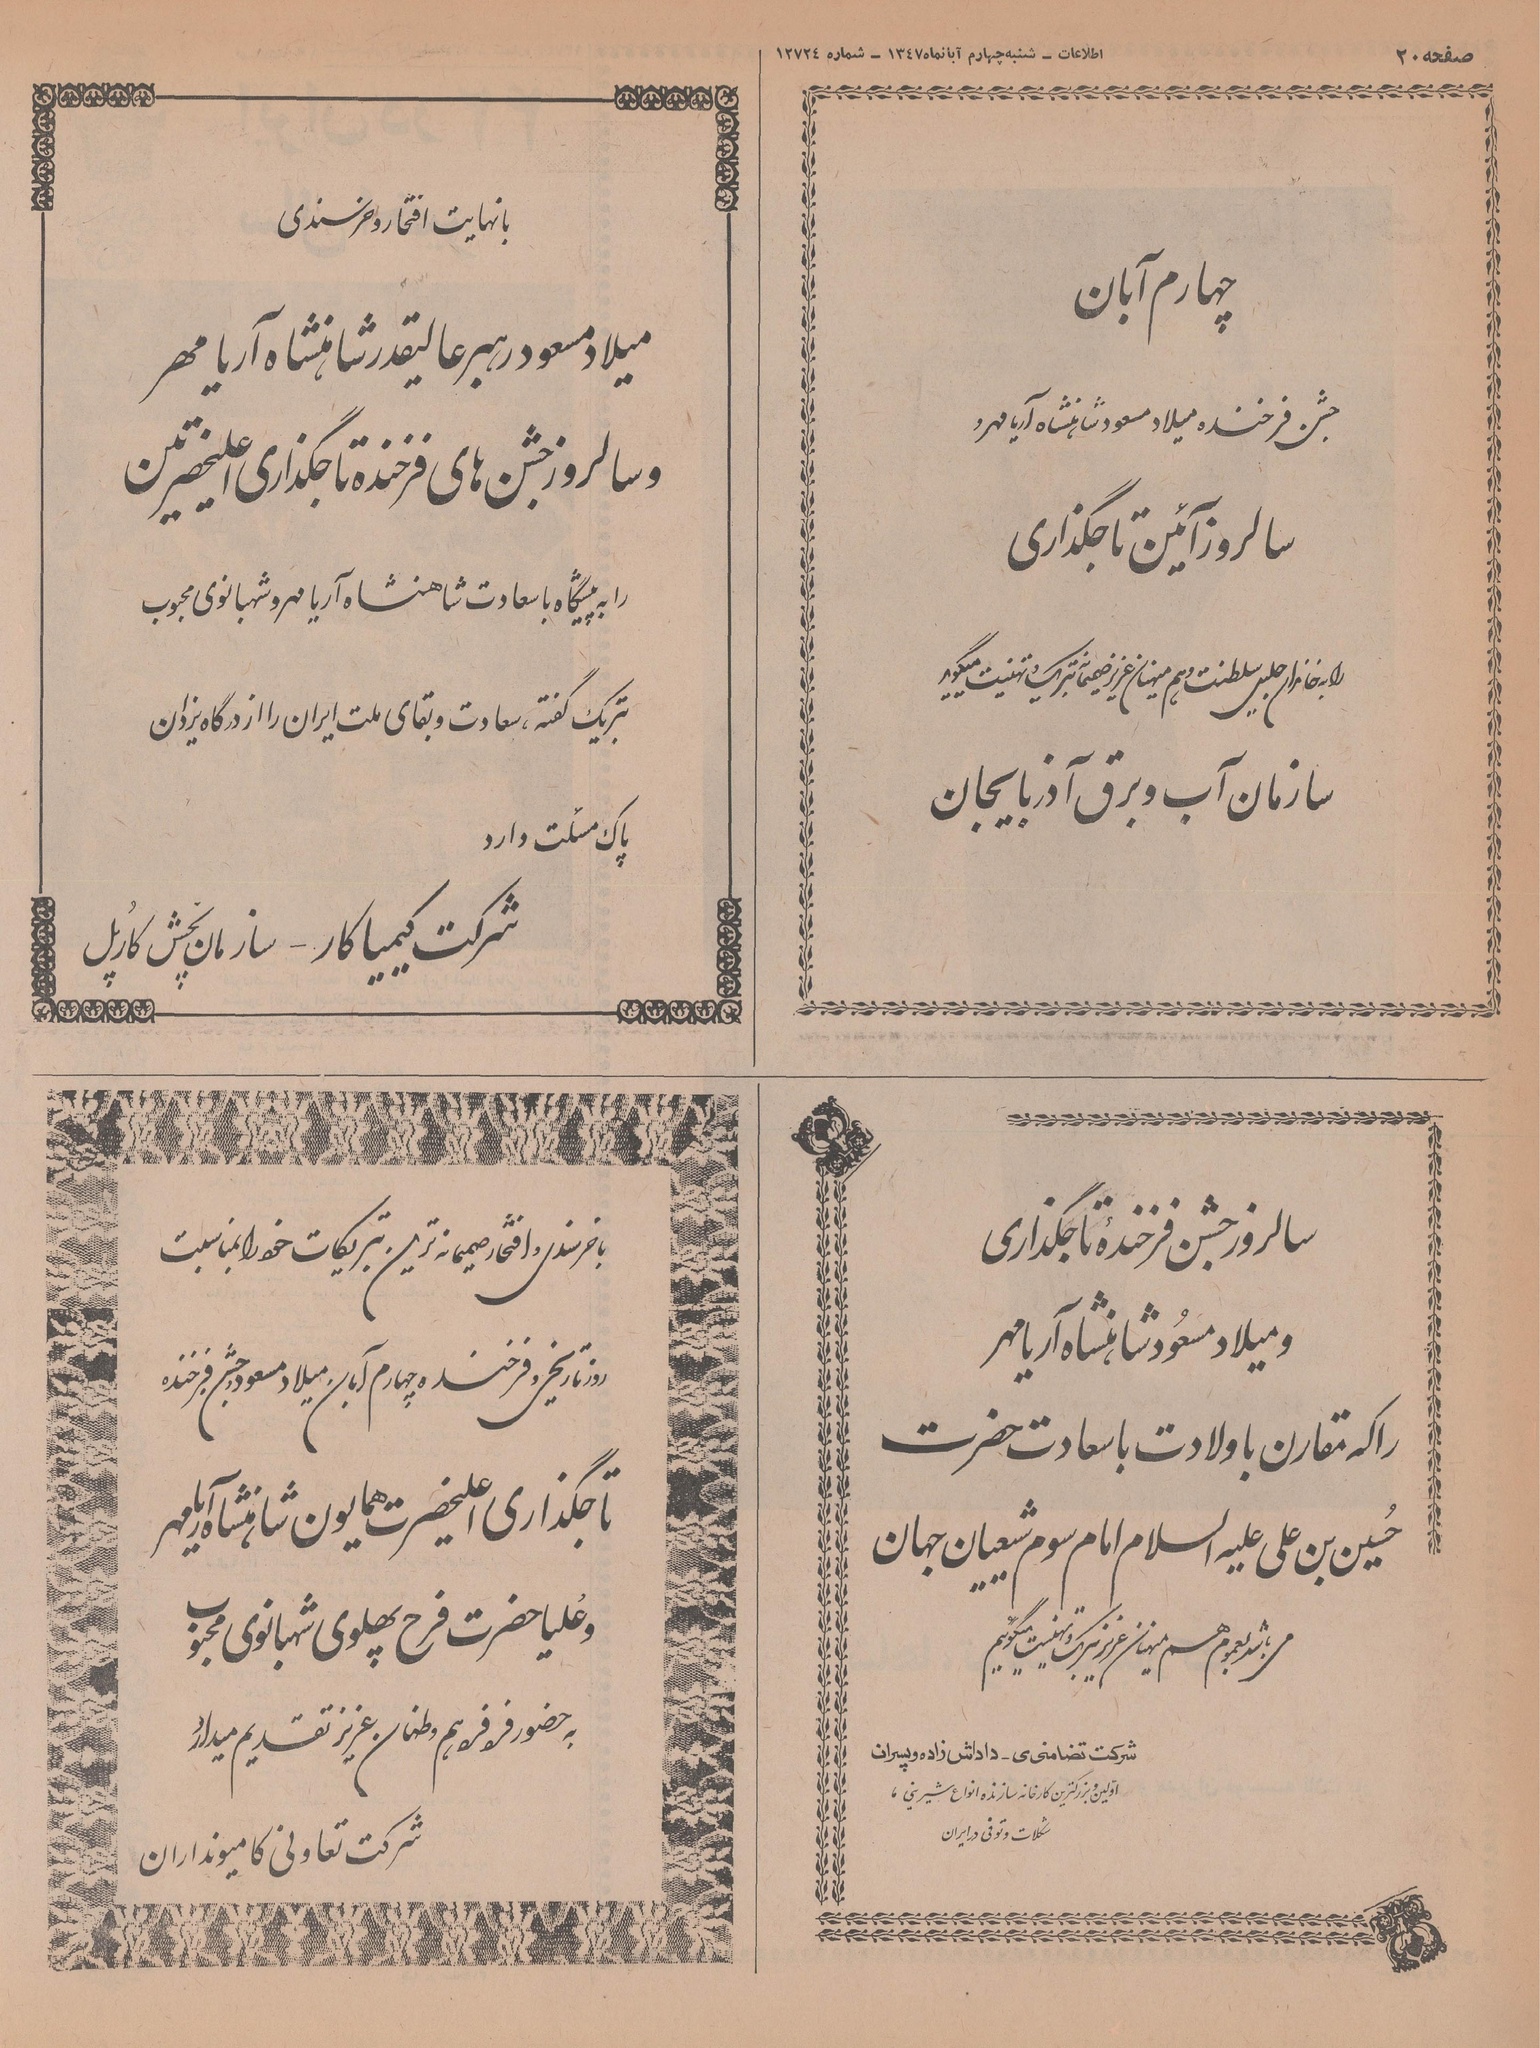 صفحه ۲۰
اطلاعات - شنبه چهارم آبانماه ۱۳۴۷ - شماره ۱۲۷۲۴
چهارم آبان
جشن فرخنده میلاد مسعود شاهنشاه آریامهر و
سالروز آئین تاجگذاری
را به خاندان جلیل سلطنت و هم میهنان عزیز صمیمانه تبریک و تهنیت میگوید
سازمان آب و برق آذربایجان
با نهایت افتخار و خرسندی
میلاد مسعود رهبر عالیقدر شاهنشاه آریامهر
و سالروز جشن های فرخنده تاجگذاری اعلیحضرتین
را به پیشگاه با سعادت شاهنشاه آریامهر و شهبانوی محبوب
تبریک گفته ، سعادت و بقای ملت ایران را از درگاه یزدان
پاک مسئلت دارد
شرکت کیمیا کار - سازمان پخش کارپل
سالروز جشن فرخندهٔ تاجگذاری
و میلاد مسعُود شاهنشاه آریامهر
را که مقارن با ولادت با سعادت حضرت
حُسین بن علی علیه السلام امام سوم شیعیان جهان
می باشد بعموم هم میهنان عزیز تبریک و تهنیت میگوئیم
شرکت تضامنی ی - داداش زاده و پسران
اولین و بزرگترین کارخانه سازنده انواع شیرینی ،
شکلات و توفی در ایران
با خرسندی و افتخار صمیمانه ترین تبریکات خود را بمناسبت
روز تاریخی و فرخنده چهارم آبان میلاد مسعود و جشن فرخنده
تاجگذاری اعلیحضرت همایون شاهنشاه آریامهر
و عُلیاحضرت فرح پهلوی شهبانوی محبوب
به حضور فرد فرد هم وطنان عزیز تقدیم میدارد
شرکت تعاونی کامیونداران